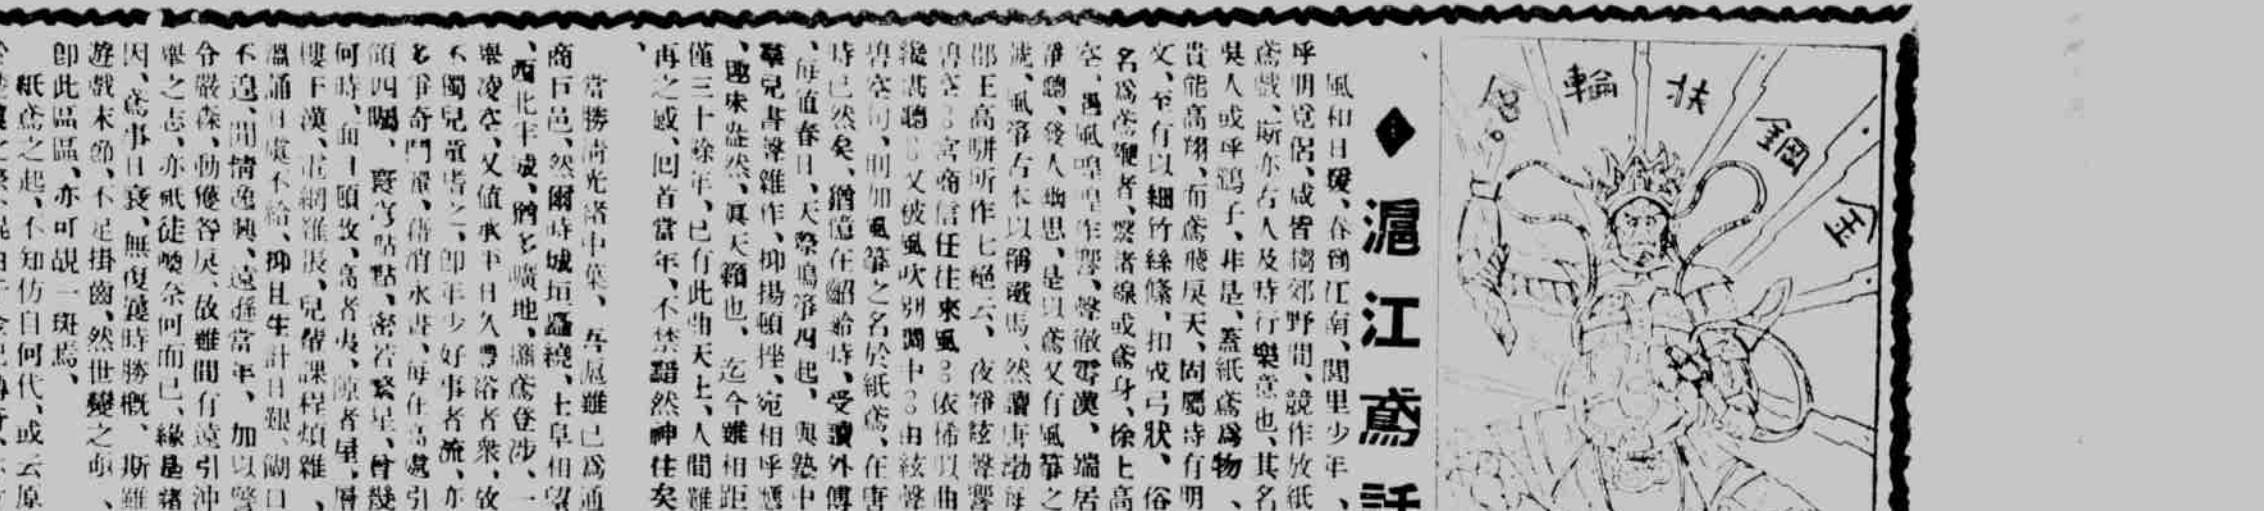 全鋼狀輪
◆滬江鳶話
風和日暖、春到江南、閭里少年、
呼朋覓侶、咸皆擕郊野間、競作放紙
鳶戲、斯亦古人及時行樂意也、其名
吳人或呼鷂子、非是、蓋紙鳶爲物、
貴能高翔、而鳶飛戾天、固屬詩有明
文、至有以細竹絲絛、扣成弓狀、俗
名爲鳶鞭者、繫諸線或鳶身、徐上高
空、遇風嗚嗚作響、聲徹雲漢、端居
靜聽、發人幽思、是以鳶又有風箏之
號、風箏古本以稱鐵馬、然讀唐渤海
郡王高駢所作七絕云、夜靜絃聲響
碧空。宮商信任往來風。依稀似曲
纔堪聽。又被風吹別調中。由絃聲
碧空句、則加風箏之名於紙鳶、在唐
時已然矣、猶憶在齠齡時、受讀外傅
、每值春日、天際鳴箏四起、與塾中
羣兒書聲雜作、抑揚頓挫、宛相呼應
、趣味盎然、眞天籟也、迄今雖相距
僅三十餘年、已有此曲天上、人間難
再之感、回首當年、不禁黯然神往矣
、
當勝清光緒中葉、吾滬雖已爲通
商巨邑、然爾時城垣繚繞、土阜相望
、西北半城、猶多曠地、攜鳶登涉、一
舉凌空、又值承平日久、豐裕者衆、故
不獨兒童嗜之、卽年少好事者流、亦
多爭奇鬥麗、藉消永晝、每在高處引
領四矚、寥空點點、密若繁星、曾幾
何時、面目頓改、高者夷、隙者屋、層
樓干漢、電網雜張、兒僮課程煩雜、
溫誦日處不給、抑且生計日艱、餬口
不遑、閒情逸興、遠遜當年、加以警
令嚴森、動獲咎戾、故雖間有遠引沖
舉之志、亦祇徒喚奈何而已、緣是諸
因、鳶事日衰、無復曩時勝槪、斯雖
遊戲末節、不足掛齒、然世變之亟、
卽此區區、亦可覘一斑焉、
紙鳶之起、不知仿自何代、或云原